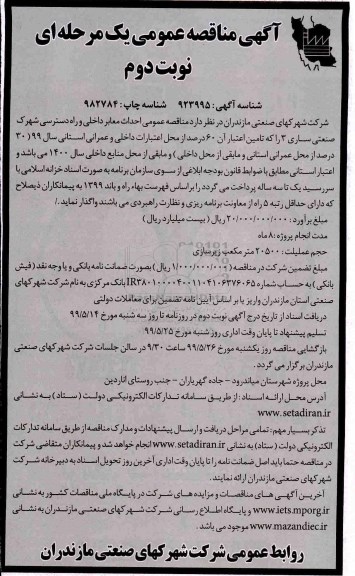 آگهی مناقصه عمومی یک مرحله ای
نوبت دوم
شناسه آگهی: ۹۲۳۹۹۵ شناسه چاپ: ۹۸۲۷۸۴
شرکت شهرکهای صنعتی مازندران در نظر دارد مناقصه عمومی احداث معابر داخلی و راه دسترسی شهرک
صنعتی ساری ۳ را که تامین اعتبار آن ۶۰ درصد از محل اعتبارات داخلی و عمرانی استانی سال ۹۹ (۳۰
درصد از محل عمرانی استانی و مابقی از محل داخلی) و مابقی از محل منابع داخلی سال ۱۴۰۰ می باشد و
اعتبار استانی مطابق با ضوابط قانون بودجه ابلاغی از سوی سازمان برنامه به صورت اسناد خزانه اسلامی با
سررسید یک تا سه ساله پرداخت می گردد را بر اساس فهرست بهاء راه و باند ۱۳۹۹ به پیمانکاران ذیصلاح
که دارای حداقل رتبه ۵ راه از معاونت برنامه ریزی و نظارت راهبردی می باشند واگذار نماید./
مبلغ برآورد: ۲۰/۰۰۰/۰۰۰/۰۰۰ ریال (بیست میلیارد ریال)
مدت انجام پروژه: ۸ ماه
حجم عملیات: ۲۰۵۰۰ متر مکعب زیرسازی
مبلغ تضمین شرکت در مناقصه (۱/۰۰۰/۰۰۰/۰۰۰ ریال) بصورت ضمانت نامه بانکی و یا وجه نقد (فیش
بانکی) به حساب شماره بانک مرکزی به نام شرکت شهرکهای
صنعتی استان مازندران واریز یا بر اساس آیین نامه تضمین برای معاملات دولتی
دریافت اسناد از تاریخ درج آگهی نوبت دوم در روزنامه تا روز سه شنبه مورخ ۹۹/۵/۱۴
تسلیم پیشنهاد تا پایان وقت اداری روز شنبه مورخ ۹۹/۵/۲۵
بازگشایی مناقصه روز یکشنبه مورخ ۹۹/۵/۲۶ ساعت ۹/۳۰ در سالن جلسات شرکت شهرکهای صنعتی
مازندران برگزار می گردد.
محل پروژه شهرستان میاندرود - جاده گهرباران - جنب روستای اناردین
آدرس محل ارائه اسناد: از طریق سامانه تدارکات الکترونیکی دولت (ستاد) به نشانی
www.setadiran.ir
تذکر بسیار مهم: تمامی مراحل دریافت و ارسال پیشنهادات و مدارک مناقصه از طریق سامانه تدارکات
الکترونیکی دولت (ستاد) به نشانی www.setadiran.ir انجام خواهد شد و پیمانکاران متقاضی شرکت
در مناقصه حتما باید اصل ضمانت نامه را تا پایان وقت اداری آخرین روز تحویل اسناد به دبیرخانه شرکت
شهرکهای صنعتی مازندران ارائه نمایند.
آخرین آگهی های مناقصات و مزایده های شرکت در پایگاه ملی مناقصات کشور به نشانی
www.iets.mporg.ir و پایگاه اطلاع رسانی شرکت شهرکهای صنعتی مازندران به نشانی
www.mazandiec.ir موجود می باشد.
روابط عمومی شرکت شهرکهای صنعتی مازندران